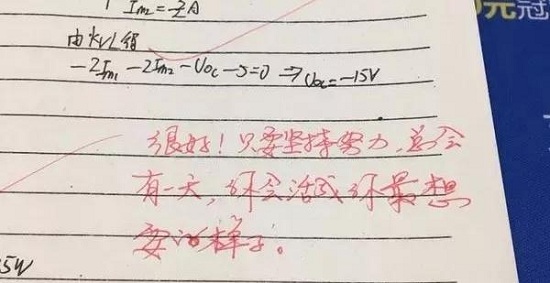 Im2 = 7/2 A
由KVL得
-2Im1 - 2Im2 - Uoc - 5 = 0 ⇒ Uoc = -15V
很好！只要坚持努力，总会
有一天，你会活成你最想
要的样子。
5W
元冠